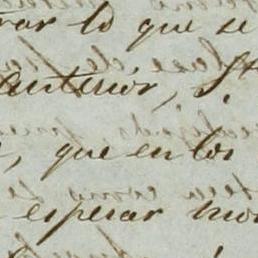 rar lo que se
anterior, S
, que en los
esperar mo